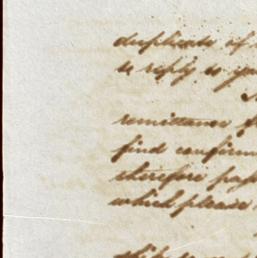 duplicate of
to reply to you
remittance
find confirm
therefore pass
which please